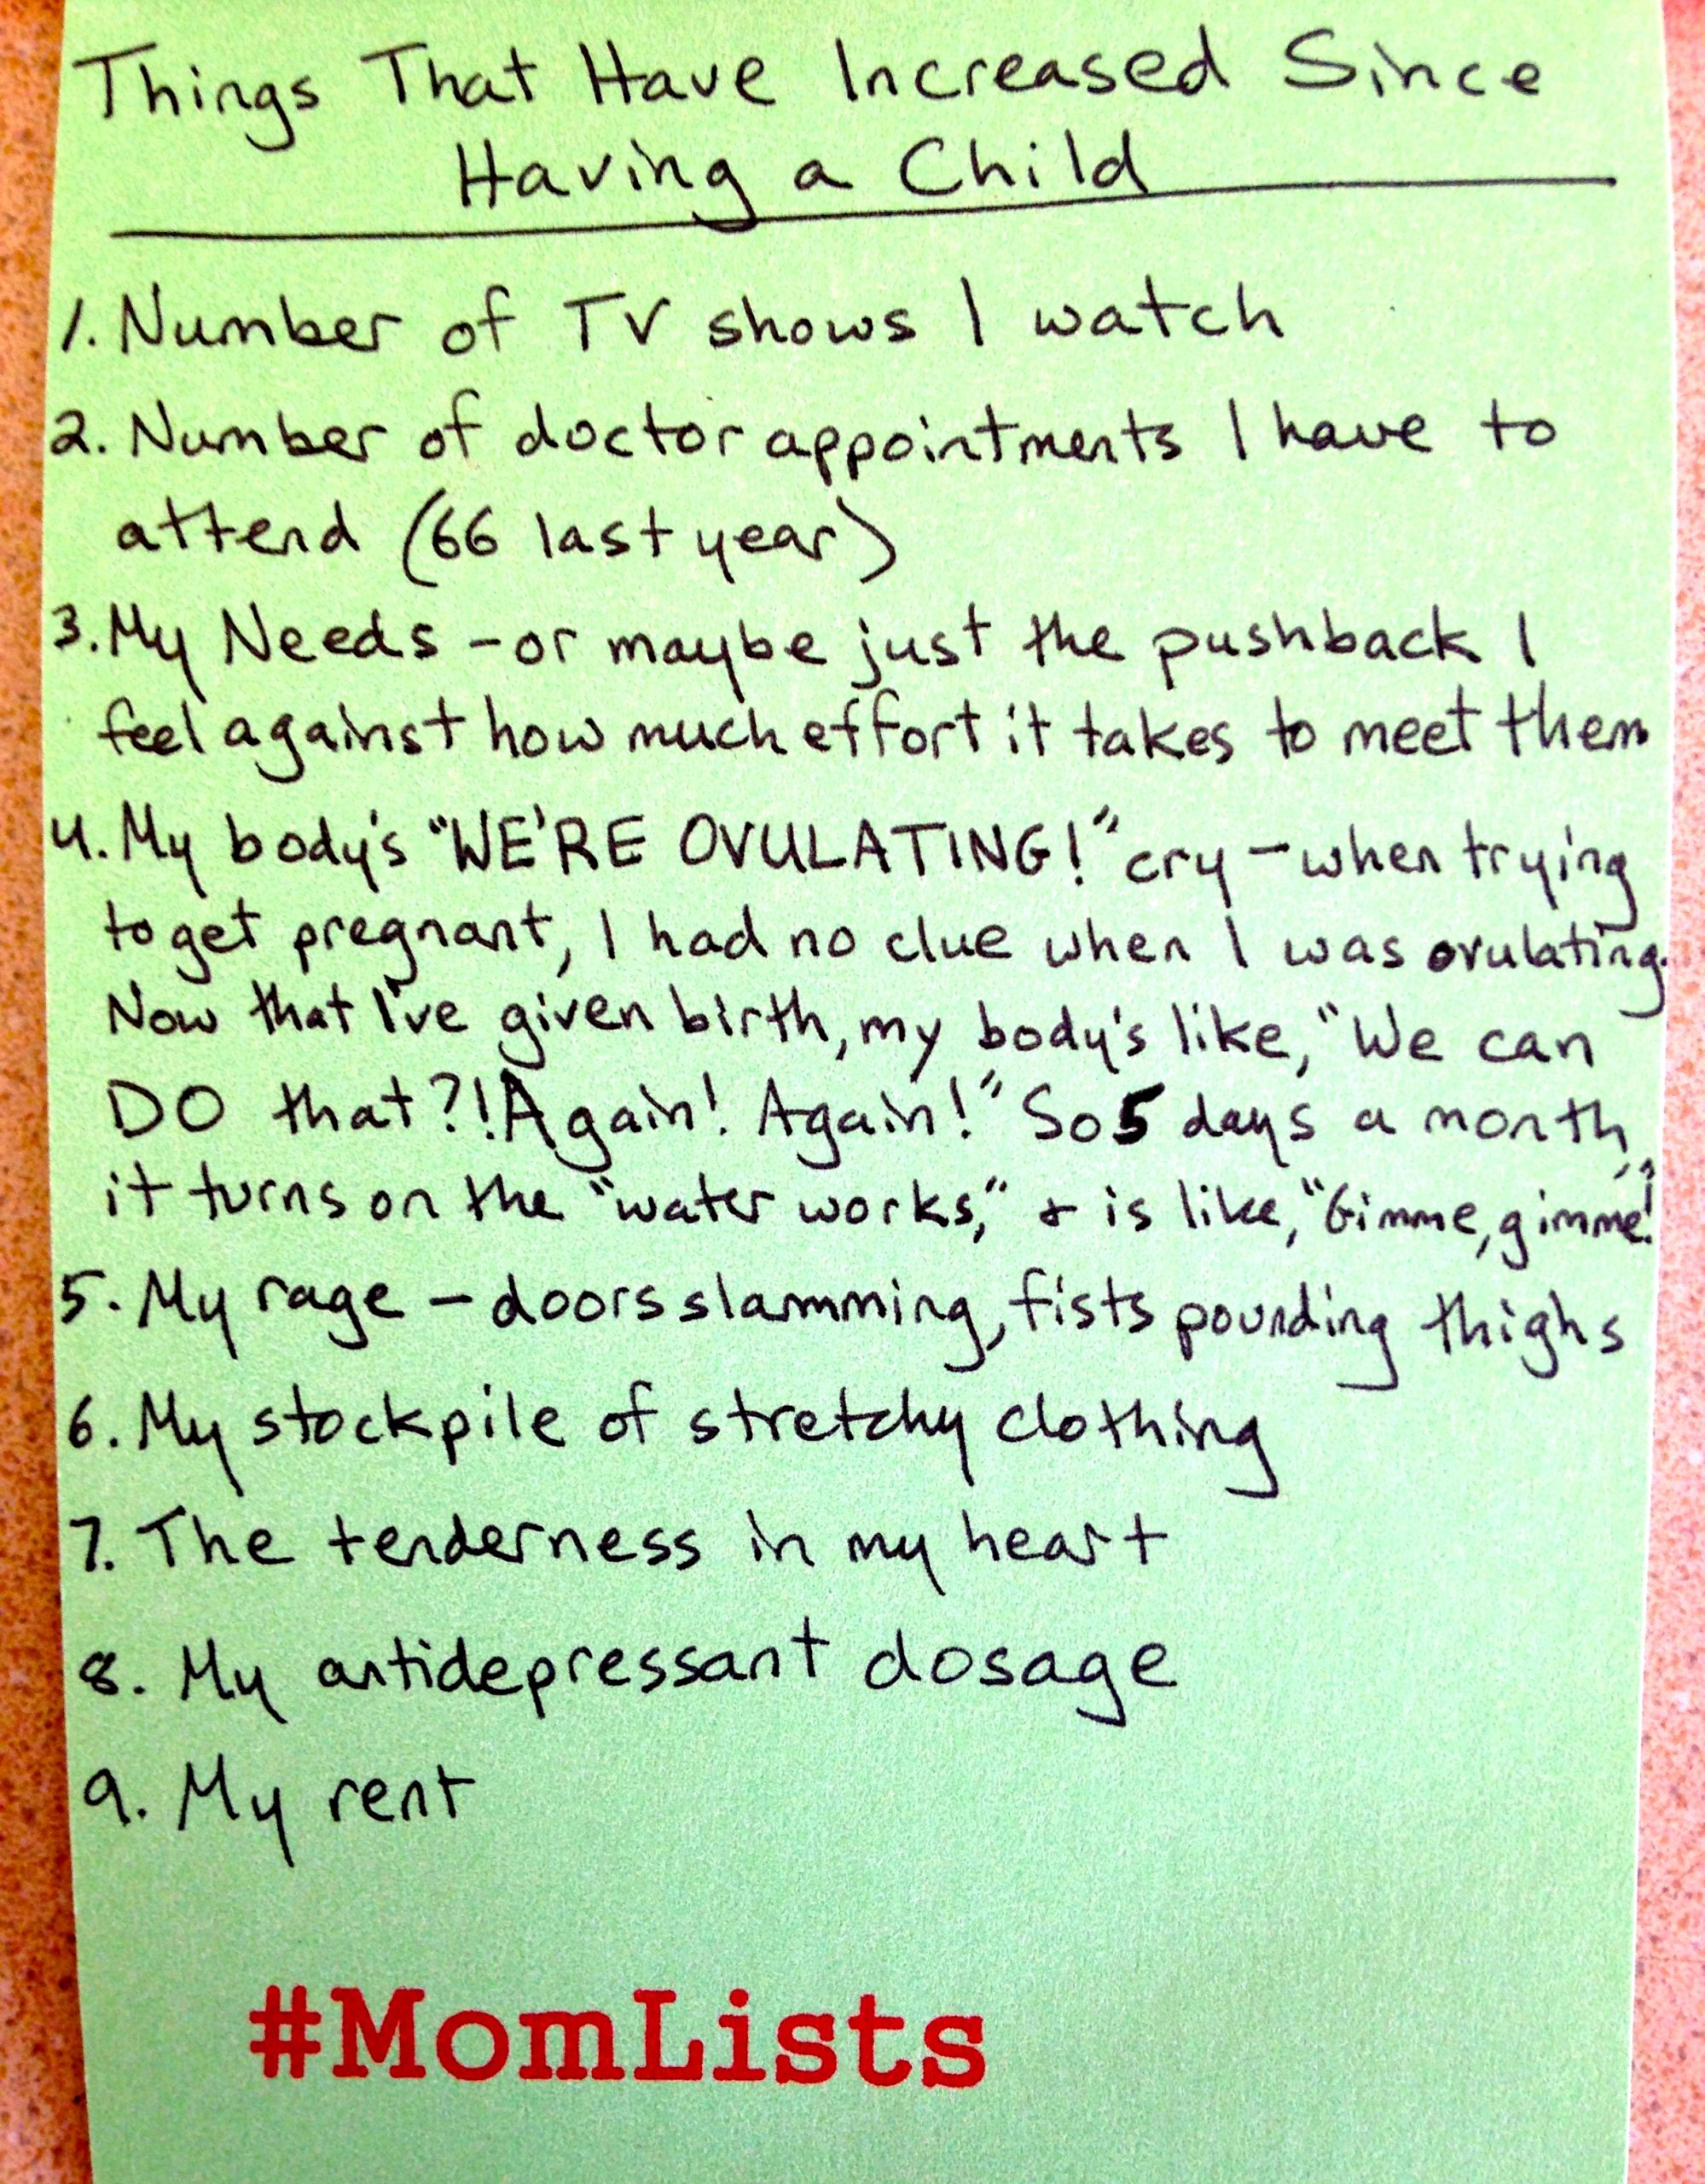 Things That Have Increased Since
Having a Child
1. Number of TV shows I watch
2. Number of doctor appointments I have to
attend (66 last year)
3. My Needs - or maybe just the pushback I
feel against how much effort it takes to meet them
4. My body's "WE'RE OVULATING!" cry - when trying
to get pregnant, I had no clue when I was ovulating.
Now that I've given birth, my body's like, "We can
DO that?! Again! Again!" So 5 days a month,
it turns on the "water works," & is like, "Gimme, gimme!"
5. My rage - doors slamming, fists pounding thighs
6. My stockpile of stretchy clothing
7. The tenderness in my heart
8. My antidepressant dosage
9. My rent
#MomLists